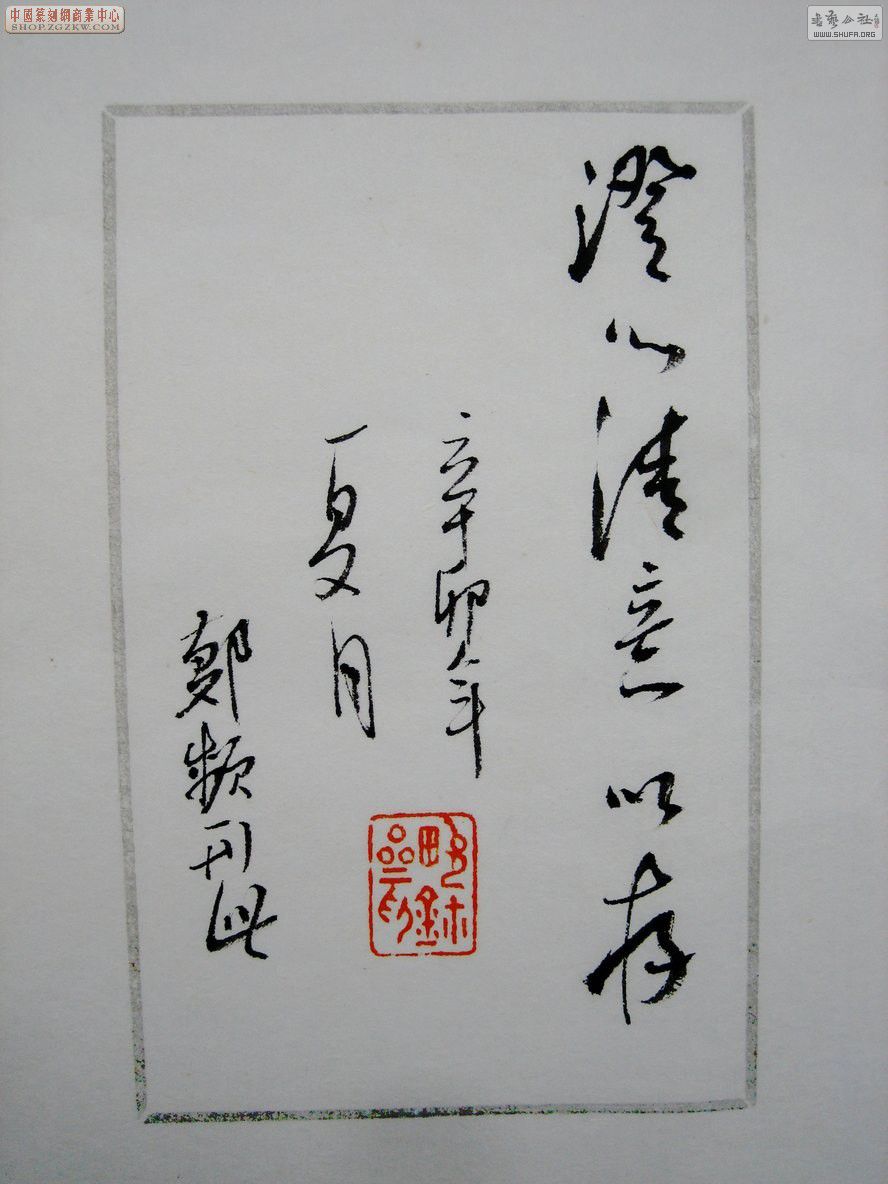 中國篆刻網商業中心
SHOP.ZGZKW.COM
书艺公社
WWW.SHUFA.ORG
澄心清意以存
辛卯年
夏月
鄭頻刊此